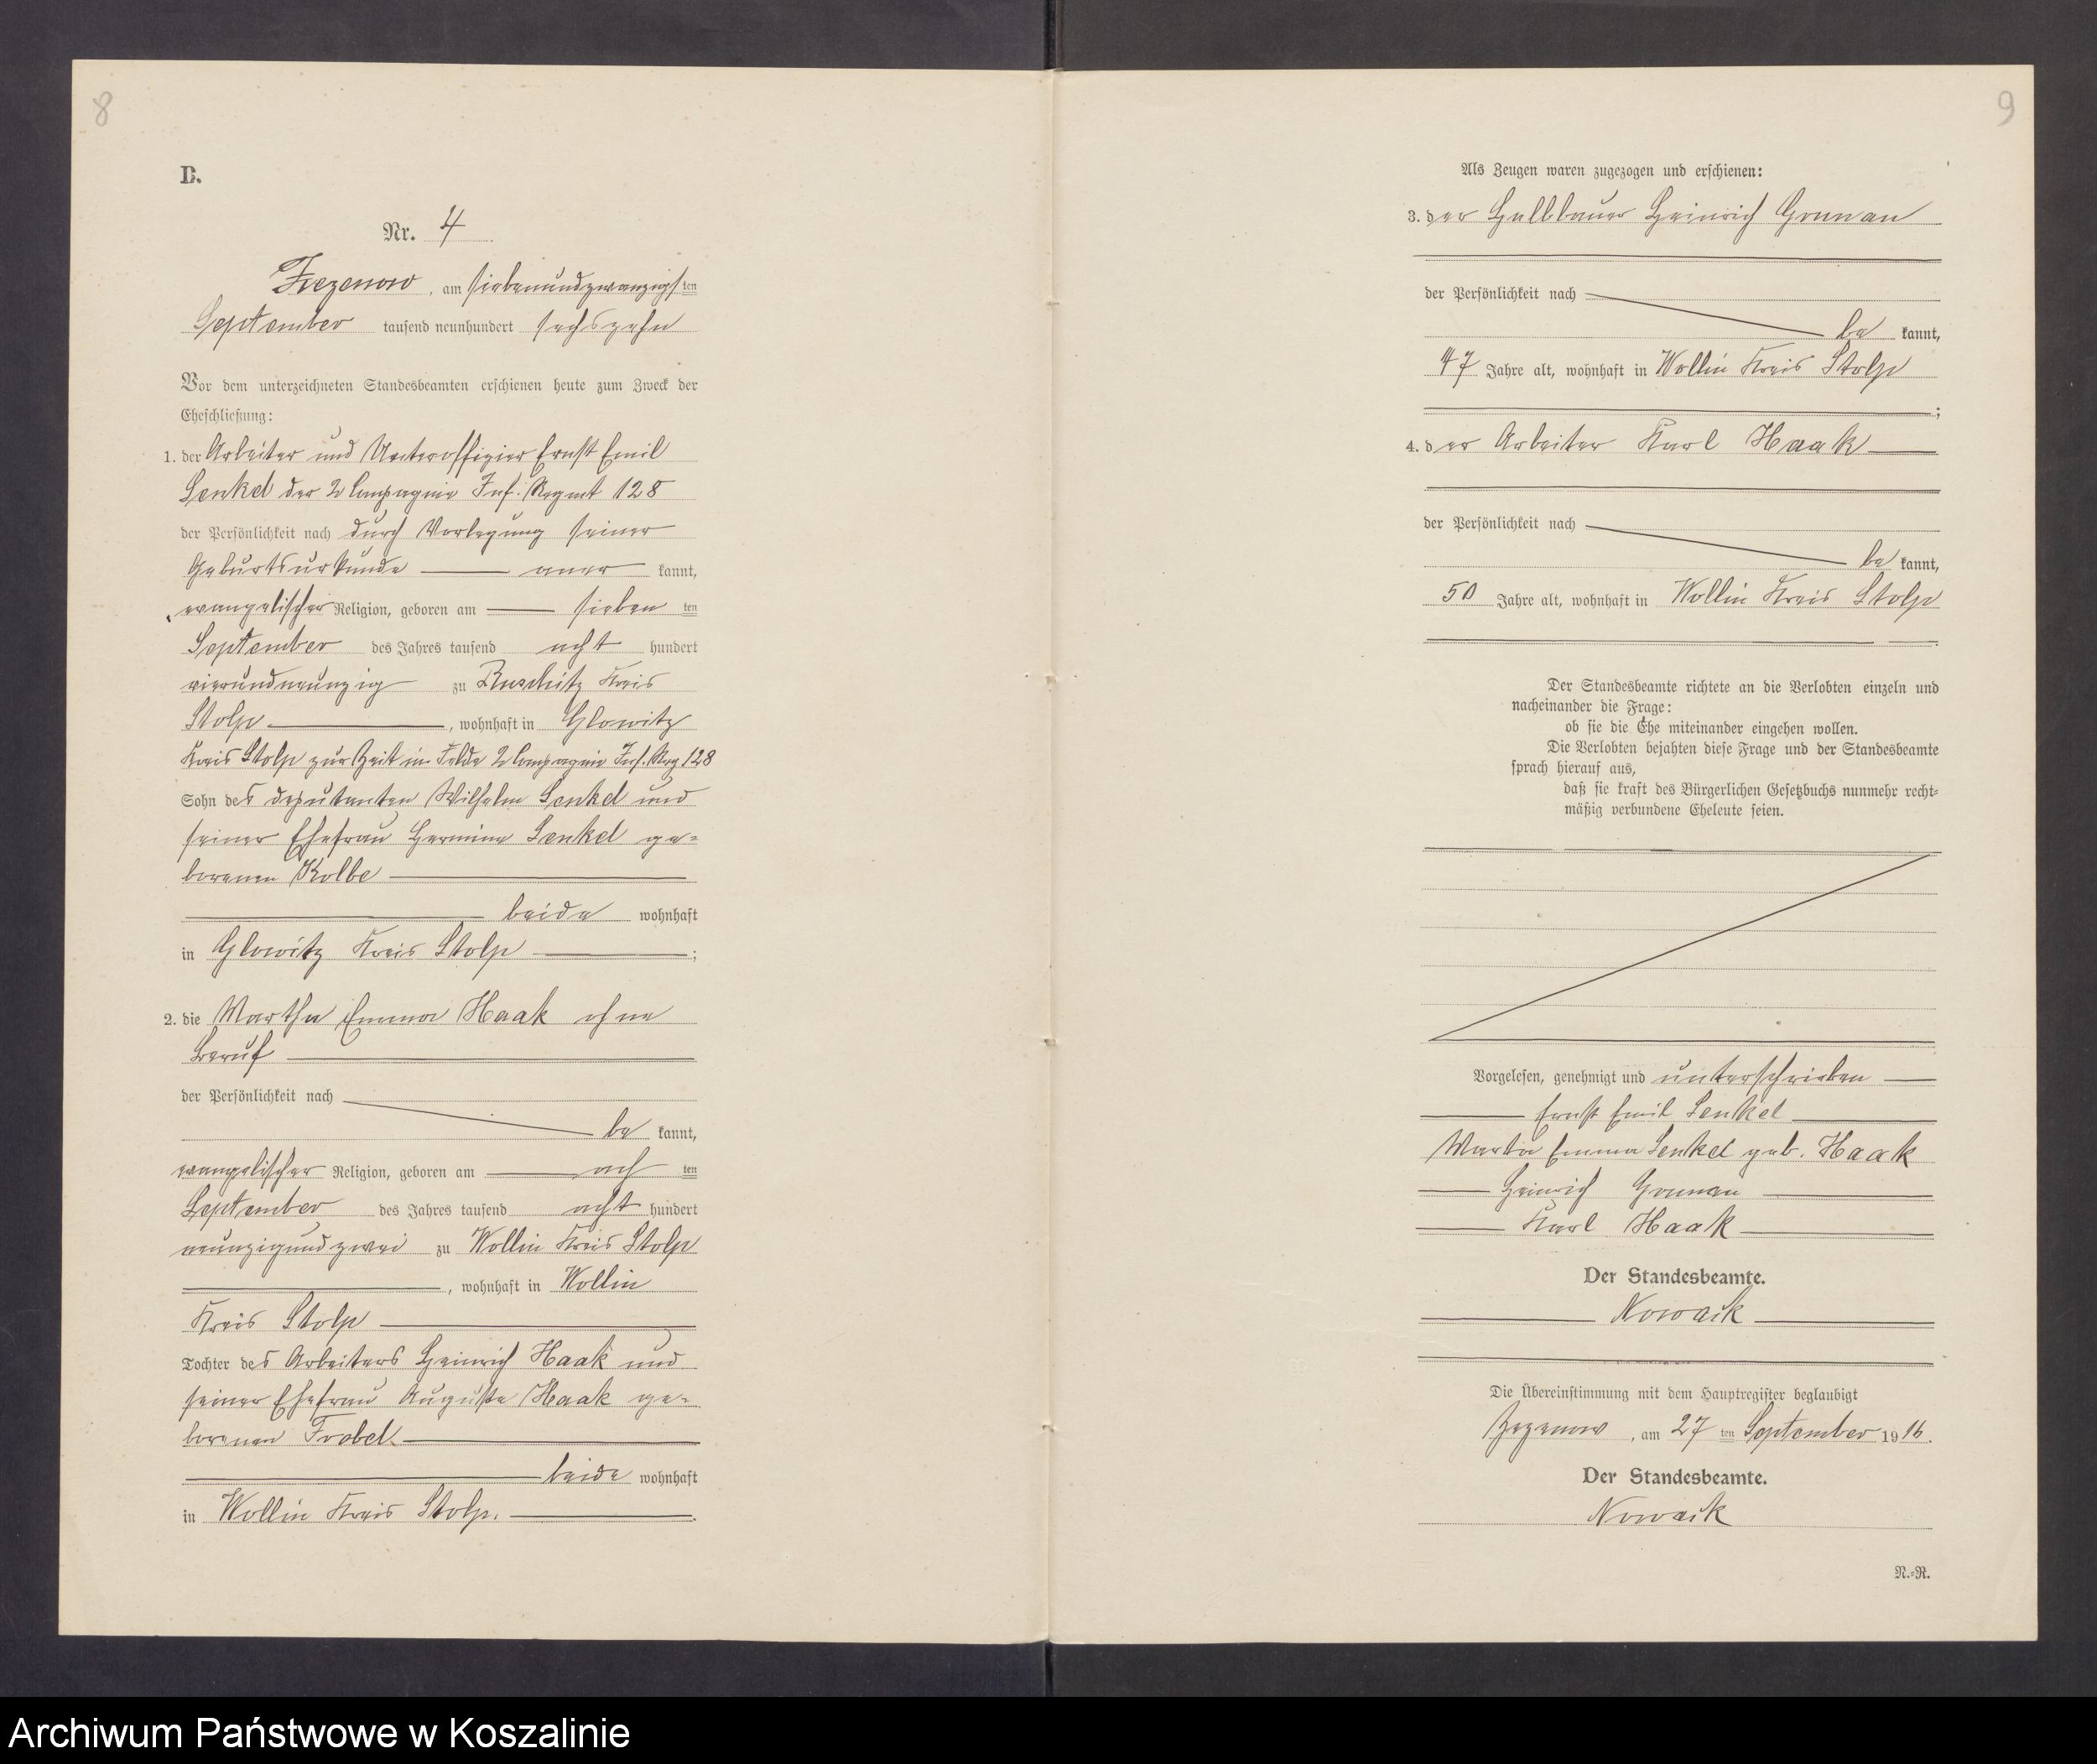 8
B.
Nr. 4
Zezenow, am siebenundzwanzigsten
September tausend neunhundert sechszehn
Vor dem unterzeichneten Standesbeamten erschienen heute zum Zweck der
Eheschließung:
1. der Arbeiter und Unteroffizier Ernst Emil
Senkel der 2 Compagnie Inf. Regmt 128
der Persönlichkeit nach durch Vorlegung seiner
Geburtsurkunde aner kannt,
evangelischer Religion, geboren am sieben ten
September des Jahres tausend acht hundert
vierundneunzig zu Ruschitz Kreis
Stolp, wohnhaft in Glowitz
Kreis Stolp zur Zeit im Felde 2 Compagnie Inf. Reg 128
Sohn des deputanten Wilhelm Senkel und
seiner Ehefrau Hermine Senkel ge-
borenen Kolbe
beide wohnhaft
in Glowitz Kreis Stolp;
2. die Martha Emma Haak ohne
Beruf
der Persönlichkeit nach
be kannt,
evangelischer Religion, geboren am ach ten
September des Jahres tausend acht hundert
neunzigundzwei zu Wollin Kreis Stolp
, wohnhaft in Wollin
Kreis Stolp
Tochter des Arbeiters Heinrich Haak und
seiner Ehefrau Auguste Haak ge-
borenen Trobel
beide wohnhaft
in Wollin Kreis Stolp.
9
Als Zeugen waren zugezogen und erschienen:
3. der Halbbauer Heinrich Grunau
der Persönlichkeit nach
be kannt,
47 Jahre alt, wohnhaft in Wollin Kreis Stolp
;
4. der Arbeiter Karl Haak
der Persönlichkeit nach
be kannt,
50 Jahre alt, wohnhaft in Wollin Kreis Stolp
.
Der Standesbeamte richtete an die Verlobten einzeln und
nacheinander die Frage:
ob sie die Ehe miteinander eingehen wollen.
Die Verlobten bejahten diese Frage und der Standesbeamte
sprach hierauf aus,
daß sie kraft des Bürgerlichen Gesetzbuchs nunmehr recht-
mäßig verbundene Eheleute seien.
Vorgelesen, genehmigt und unterschrieben
Ernst Emil Senkel
Marta Emma Senkel geb. Haak
Heinrich Grunau
Karl Haak
Der Standesbeamte.
Nowack
Die Übereinstimmung mit dem Hauptregister beglaubigt
Zezenow, am 27 ten September 1916.
Der Standesbeamte.
Nowack
N.-R.
Archiwum Państwowe w Koszalinie